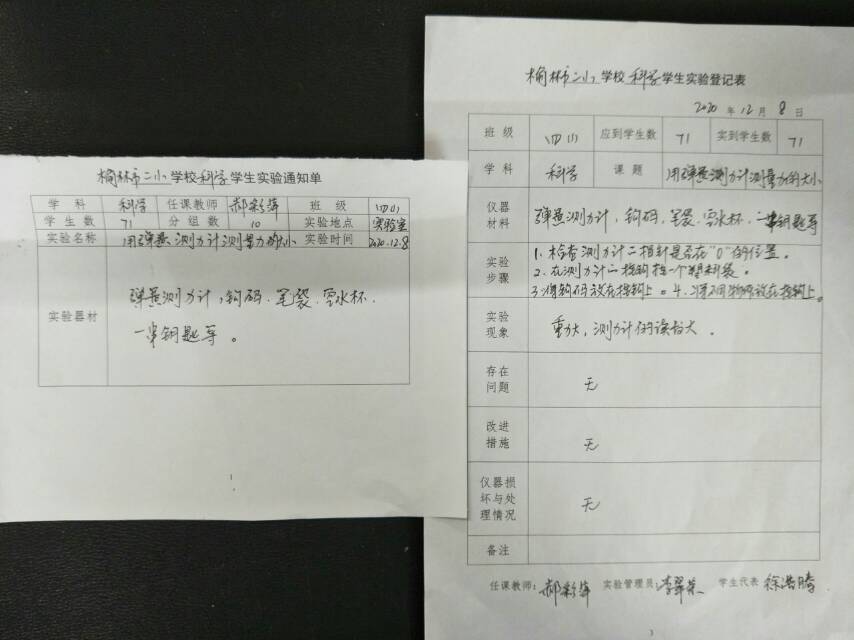 榆林市二小学校科学学生实验通知单
学科 科学 任课教师 郝彩萍 班级 四(1)
学生数 71 分组数 10 实验地点 实验室
实验名称 用弹簧测力计测量力的大小 实验时间 2020.12.8
实验器材
弹簧测力计,钩码、笔袋、空水杯、
一串钥匙等。
榆林市二小学校科学学生实验登记表
2020年12月8日
班级 四(1) 应到学生数 71 实到学生数 71
学科 科学 课题 用弹簧测力计测量力的大小
仪器材料 弹簧测力计,钩码、笔袋、空水杯、一串钥匙等
实验步骤
1、检查测力计上指针是否在"0"的位置。
2、在测力计上挂钩挂一个塑料袋。
3、将钩码放在挂钩上。4、将不同物体放在挂钩上。
实验现象 重力大,测力计的读数大。
存在问题 无
改进措施 无
仪器损坏与处理情况 无
备注
任课教师:郝彩萍 实验管理员: 学生代表 徐浩腾